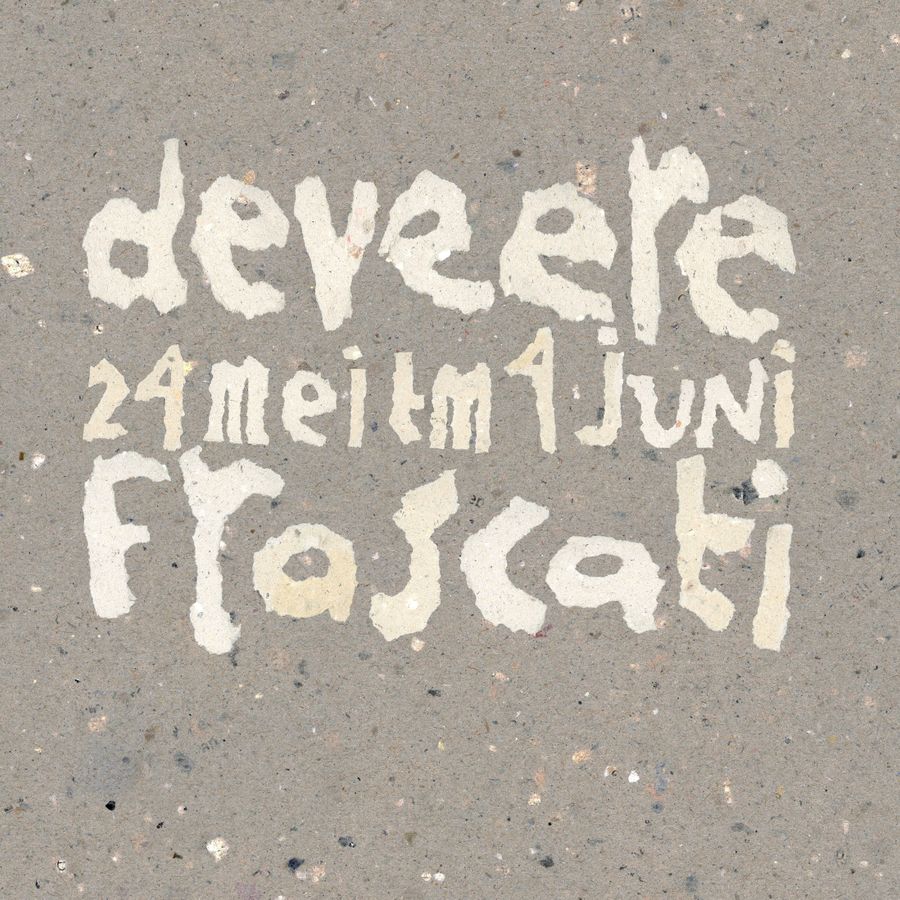 deveere
24 mei tm 1 juni
Frascati